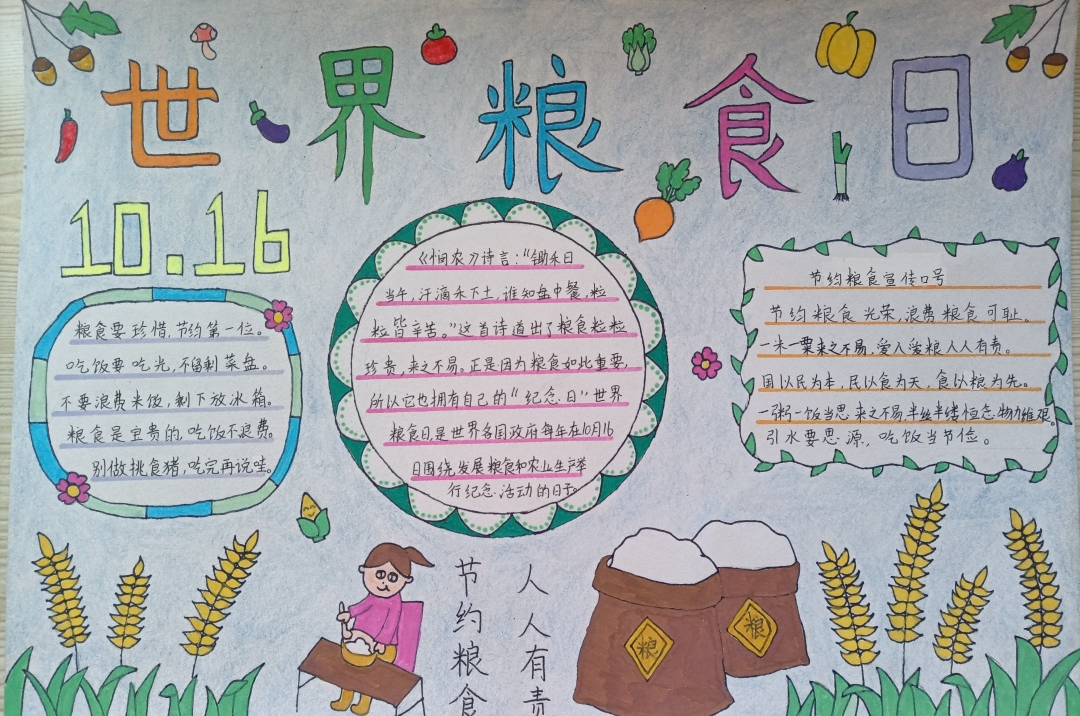 世界粮食日
10.16
粮食要珍惜,节约第一位。
吃饭要吃光,不留剩菜盘。
不要浪费米饭,剩下放冰箱。
粮食是宝贵的,吃饭不浪费。
别做挑食猪,吃完再说哇。
《悯农》诗言:“锄禾日
当午,汗滴禾下土,谁知盘中餐,粒
粒皆辛苦。”这首诗道出了粮食粒粒
珍贵,来之不易。正是因为粮食如此重要,
所以它也拥有自己的“纪念日”世界
粮食日,是世界各国政府每年在10月16
日围绕发展粮食和农业生产举
行纪念活动的日子。
节约粮食宣传口号
节约粮食光荣,浪费粮食可耻。
一米一粟来之不易,爱人爱粮人人有责。
国以民为本,民以食为天,食以粮为先。
一粥一饭当思来之不易,半丝半缕恒念物力维艰。
引水要思源,吃饭当节俭。
节约粮食
人人有责
粮
粮